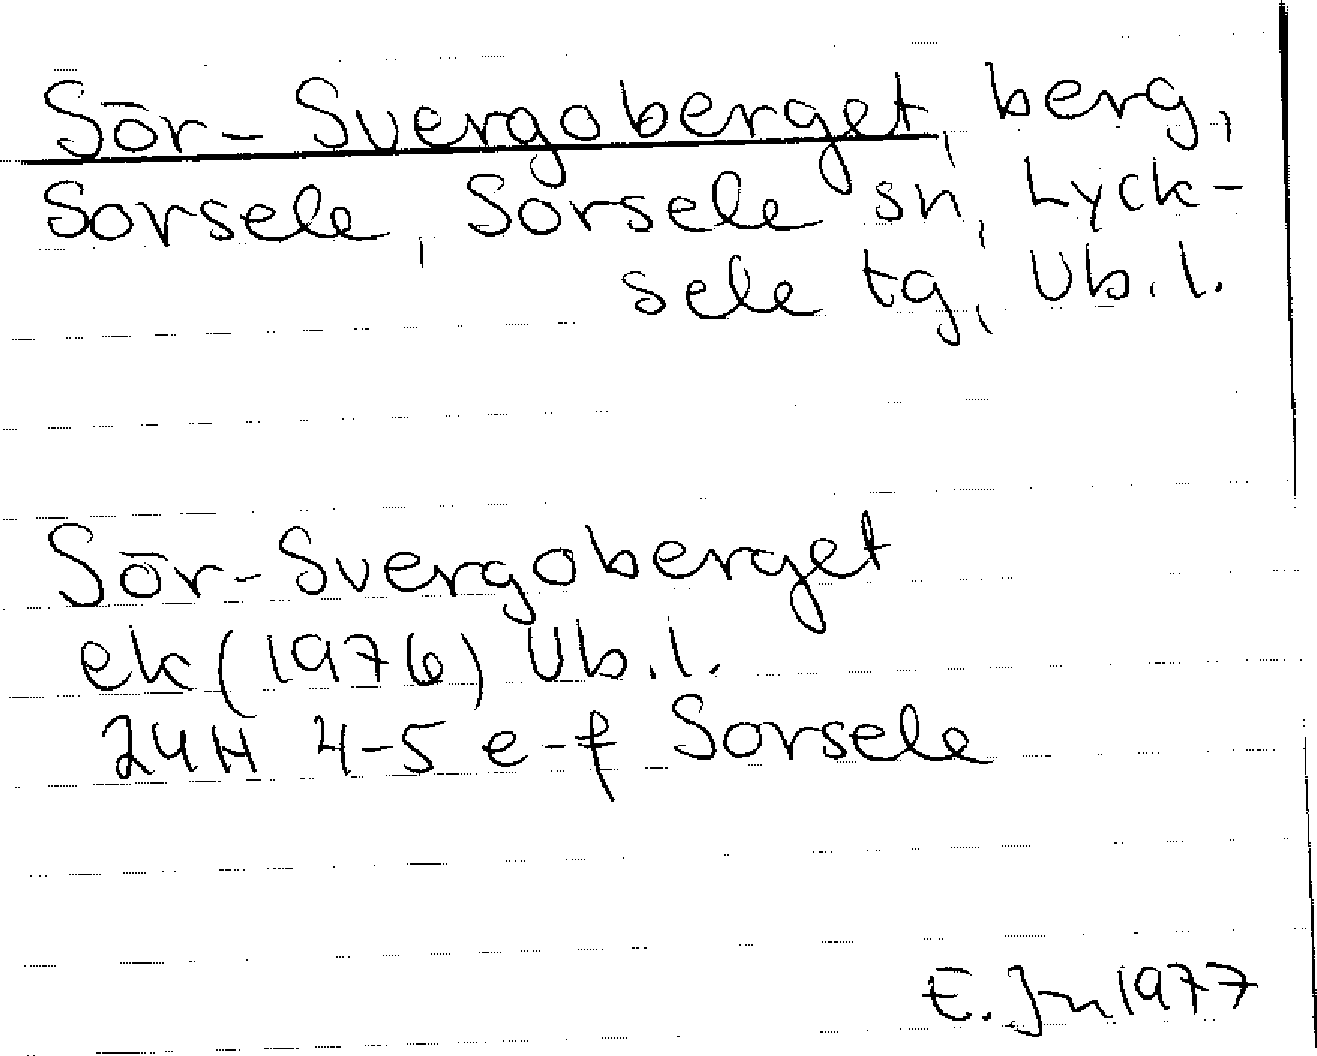 Sör-Svergoberget, berg,
Sorsele, Sorsele sn, Lyck-
sele tg, Vb. l.
Sör-Svergoberget
ek (1976) Vb. l.
24H 4-5 e-f Sorsele
E. Jn 1977